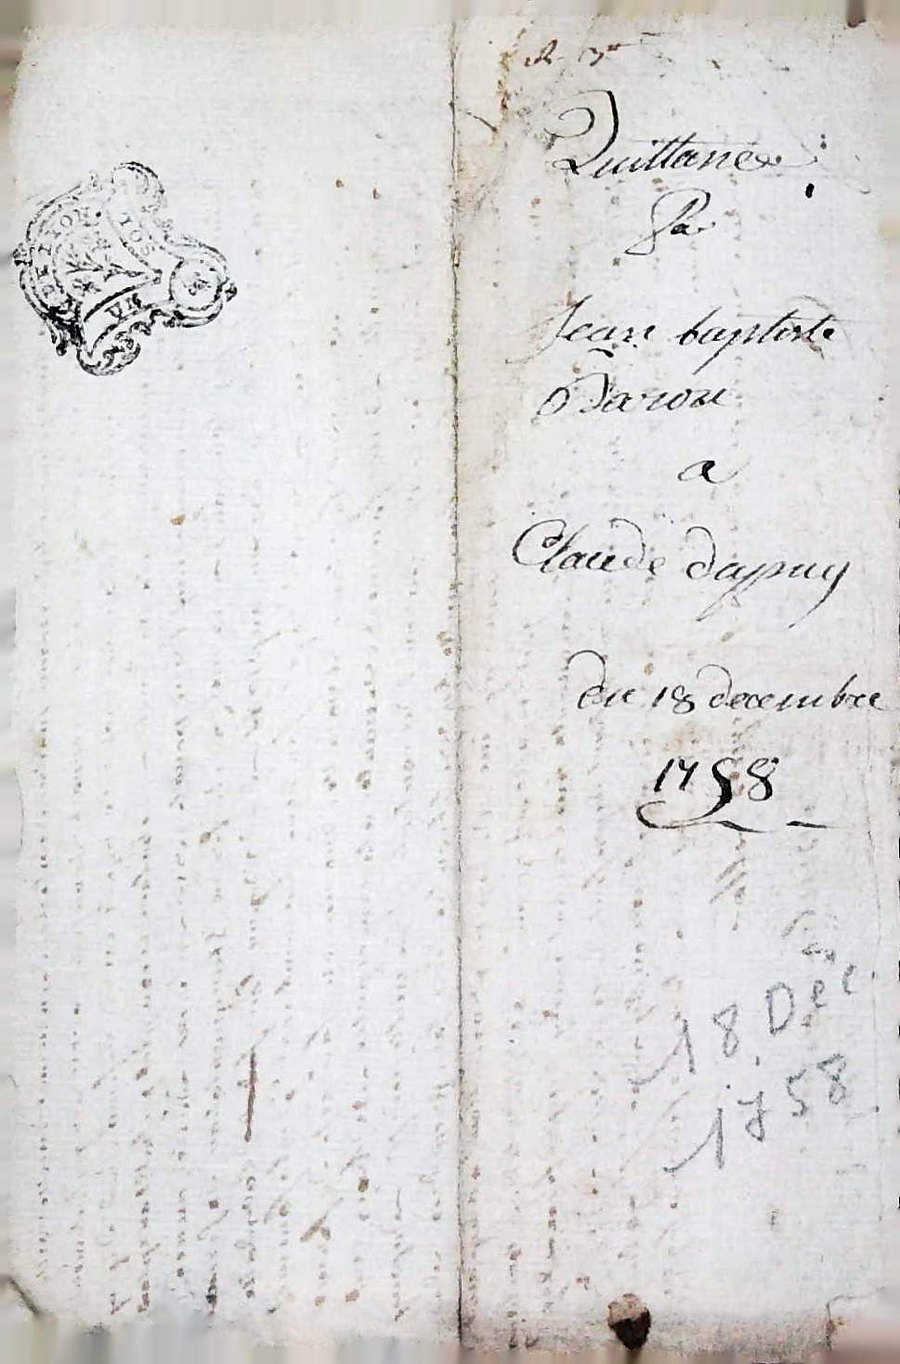 Quittance
Pa
Jean baptiste
Baron
a
Claude dupuy
du 18 decembre
1758
18 Déc.
1758